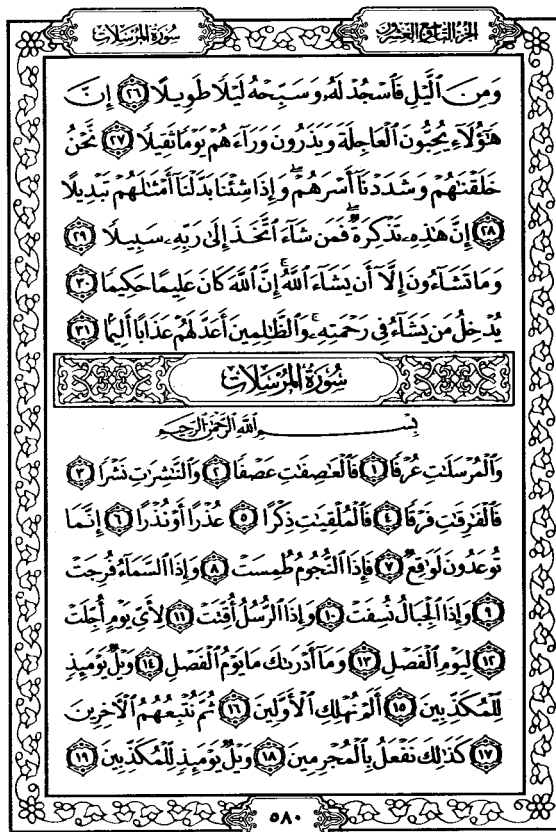 سُورَةُ المُرْسَلَات الجُزْءُ التَّاسِعُ وَالعِشْرُونَ
وَمِنَ ٱلَّيْلِ فَٱسْجُدْ لَهُۥ وَسَبِّحْهُ لَيْلًا طَوِيلًا ﴿٢٦﴾ إِنَّ
هَٰٓؤُلَآءِ يُحِبُّونَ ٱلْعَاجِلَةَ وَيَذَرُونَ وَرَآءَهُمْ يَوْمًا ثَقِيلًا ﴿٢٧﴾ نَّحْنُ
خَلَقْنَٰهُمْ وَشَدَدْنَآ أَسْرَهُمْ ۖ وَإِذَا شِئْنَا بَدَّلْنَآ أَمْثَٰلَهُمْ تَبْدِيلًا
﴿٢٨﴾ إِنَّ هَٰذِهِۦ تَذْكِرَةٌ ۖ فَمَن شَآءَ ٱتَّخَذَ إِلَىٰ رَبِّهِۦ سَبِيلًا ﴿٢٩﴾
وَمَا تَشَآءُونَ إِلَّآ أَن يَشَآءَ ٱللَّهُ ۚ إِنَّ ٱللَّهَ كَانَ عَلِيمًا حَكِيمًا ﴿٣٠﴾
يُدْخِلُ مَن يَشَآءُ فِى رَحْمَتِهِۦ ۚ وَٱلظَّٰلِمِينَ أَعَدَّ لَهُمْ عَذَابًا أَلِيمًۢا ﴿٣١﴾
سُورَةُ المُرْسَلَات
بِسْمِ ٱللَّهِ ٱلرَّحْمَٰنِ ٱلرَّحِيمِ
وَٱلْمُرْسَلَٰتِ عُرْفًا ﴿١﴾ فَٱلْعَٰصِفَٰتِ عَصْفًا ﴿٢﴾ وَٱلنَّٰشِرَٰتِ نَشْرًا ﴿٣﴾
فَٱلْفَٰرِقَٰتِ فَرْقًا ﴿٤﴾ فَٱلْمُلْقِيَٰتِ ذِكْرًا ﴿٥﴾ عُذْرًا أَوْ نُذْرًا ﴿٦﴾ إِنَّمَا
تُوعَدُونَ لَوَٰقِعٌ ﴿٧﴾ فَإِذَا ٱلنُّجُومُ طُمِسَتْ ﴿٨﴾ وَإِذَا ٱلسَّمَآءُ فُرِجَتْ
﴿٩﴾ وَإِذَا ٱلْجِبَالُ نُسِفَتْ ﴿١٠﴾ وَإِذَا ٱلرُّسُلُ أُقِّتَتْ ﴿١١﴾ لِأَىِّ يَوْمٍ أُجِّلَتْ
﴿١٢﴾ لِيَوْمِ ٱلْفَصْلِ ﴿١٣﴾ وَمَآ أَدْرَىٰكَ مَا يَوْمُ ٱلْفَصْلِ ﴿١٤﴾ وَيْلٌ يَوْمَئِذٍ
لِّلْمُكَذِّبِينَ ﴿١٥﴾ أَلَمْ نُهْلِكِ ٱلْأَوَّلِينَ ﴿١٦﴾ ثُمَّ نُتْبِعُهُمُ ٱلْءَاخِرِينَ
﴿١٧﴾ كَذَٰلِكَ نَفْعَلُ بِٱلْمُجْرِمِينَ ﴿١٨﴾ وَيْلٌ يَوْمَئِذٍ لِّلْمُكَذِّبِينَ ﴿١٩﴾
٥٨٠